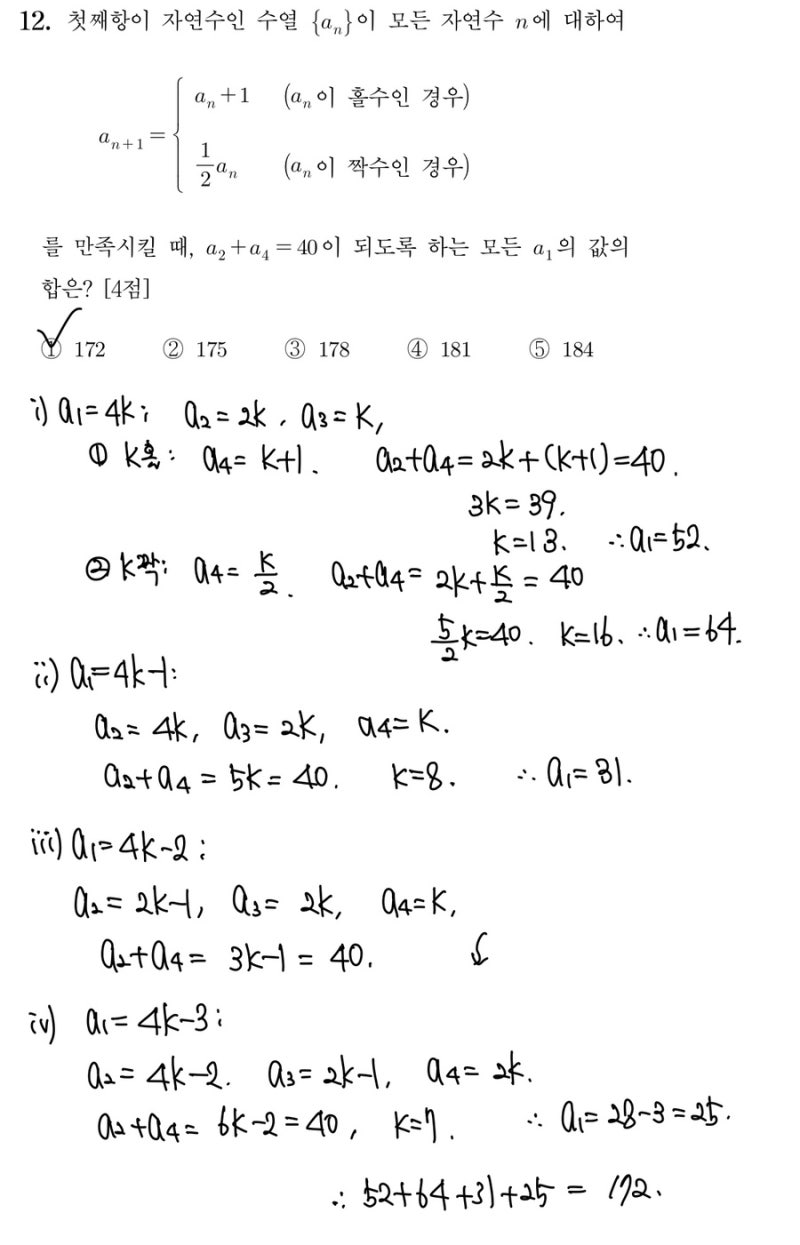 12. 첫째항이 자연수인 수열 {aₙ}이 모든 자연수 n에 대하여
aₙ₊₁ = { aₙ+1 (aₙ이 홀수인 경우)
1/2 aₙ (aₙ이 짝수인 경우)
를 만족시킬 때, a₂+a₄=40이 되도록 하는 모든 a₁의 값의
합은? [4점]
① 172 ② 175 ③ 178 ④ 181 ⑤ 184
i) a₁=4k; a₂=2k, a₃=k,
① k홀: a₄=k+1. a₂+a₄=2k+(k+1)=40.
3k=39.
k=13. ∴a₁=52.
② k짝: a₄=k/2. a₂+a₄=2k+k/2=40
5/2 k=40. k=16. ∴a₁=64.
ii) a₁=4k-1:
a₂=4k, a₃=2k, a₄=k.
a₂+a₄=5k=40. k=8. ∴a₁=31.
iii) a₁=4k-2:
a₂=2k-1, a₃=2k, a₄=k,
a₂+a₄=3k-1=40.
iv) a₁=4k-3;
a₂=4k-2. a₃=2k-1, a₄=2k.
a₂+a₄=6k-2=40, k=7. ∴a₁=28-3=25.
∴52+64+31+25=172.